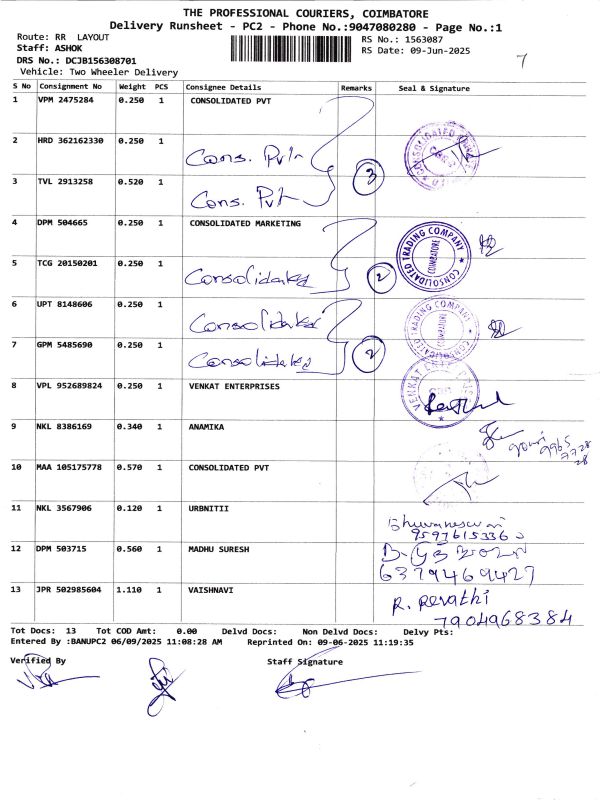 THE PROFESSIONAL COURIERS, COIMBATORE
Delivery Runsheet - PC2 - Phone No.:9047080280 - Page No.:1
Route: RR LAYOUT
RS No.: 1563087
Staff: ASHOK
RS Date: 09-Jun-2025
7
DRS No.: DCJB156308701
Vehicle: Two Wheeler Delivery
S No Consignment No Weight PCS Consignee Details Remarks Seal & Signature
1 VPM 2475284 0.250 1 CONSOLIDATED PVT
2 HRD 362162330 0.250 1 Cons. Pvt
3
3 TVL 2913258 0.520 1 Cons. Pvt
4 DPM 504665 0.250 1 CONSOLIDATED MARKETING
CONSOLIDATED TRADING COMPANY COIMBATORE
5 TCG 20150201 0.250 1 Consolidated
2
6 UPT 8148606 0.250 1 Consolidated
CONSOLIDATED TRADING COMPANY COIMBATORE
7 GPM 5485690 0.250 1 Consolidated
2
8 VPL 952689824 0.250 1 VENKAT ENTERPRISES
VENKAT ENTERPRISES
9 NKL 8386169 0.340 1 ANAMIKA
gowri
9965
7728
28
10 MAA 105175778 0.570 1 CONSOLIDATED PVT
11 NKL 3567906 0.120 1 URBNITII
Bhuvaneswari
9597615336
12 DPM 503715 0.560 1 MADHU SURESH
6379469427
13 JPR 502985604 1.110 1 VAISHNAVI
R. Revathi
7904968384
Tot Docs: 13 Tot COD Amt: 0.00 Delvd Docs: Non Delvd Docs: Delvy Pts:
Entered By :BANUPC2 06/09/2025 11:08:28 AM Reprinted On: 09-06-2025 11:19:35
Verified By Staff Signature